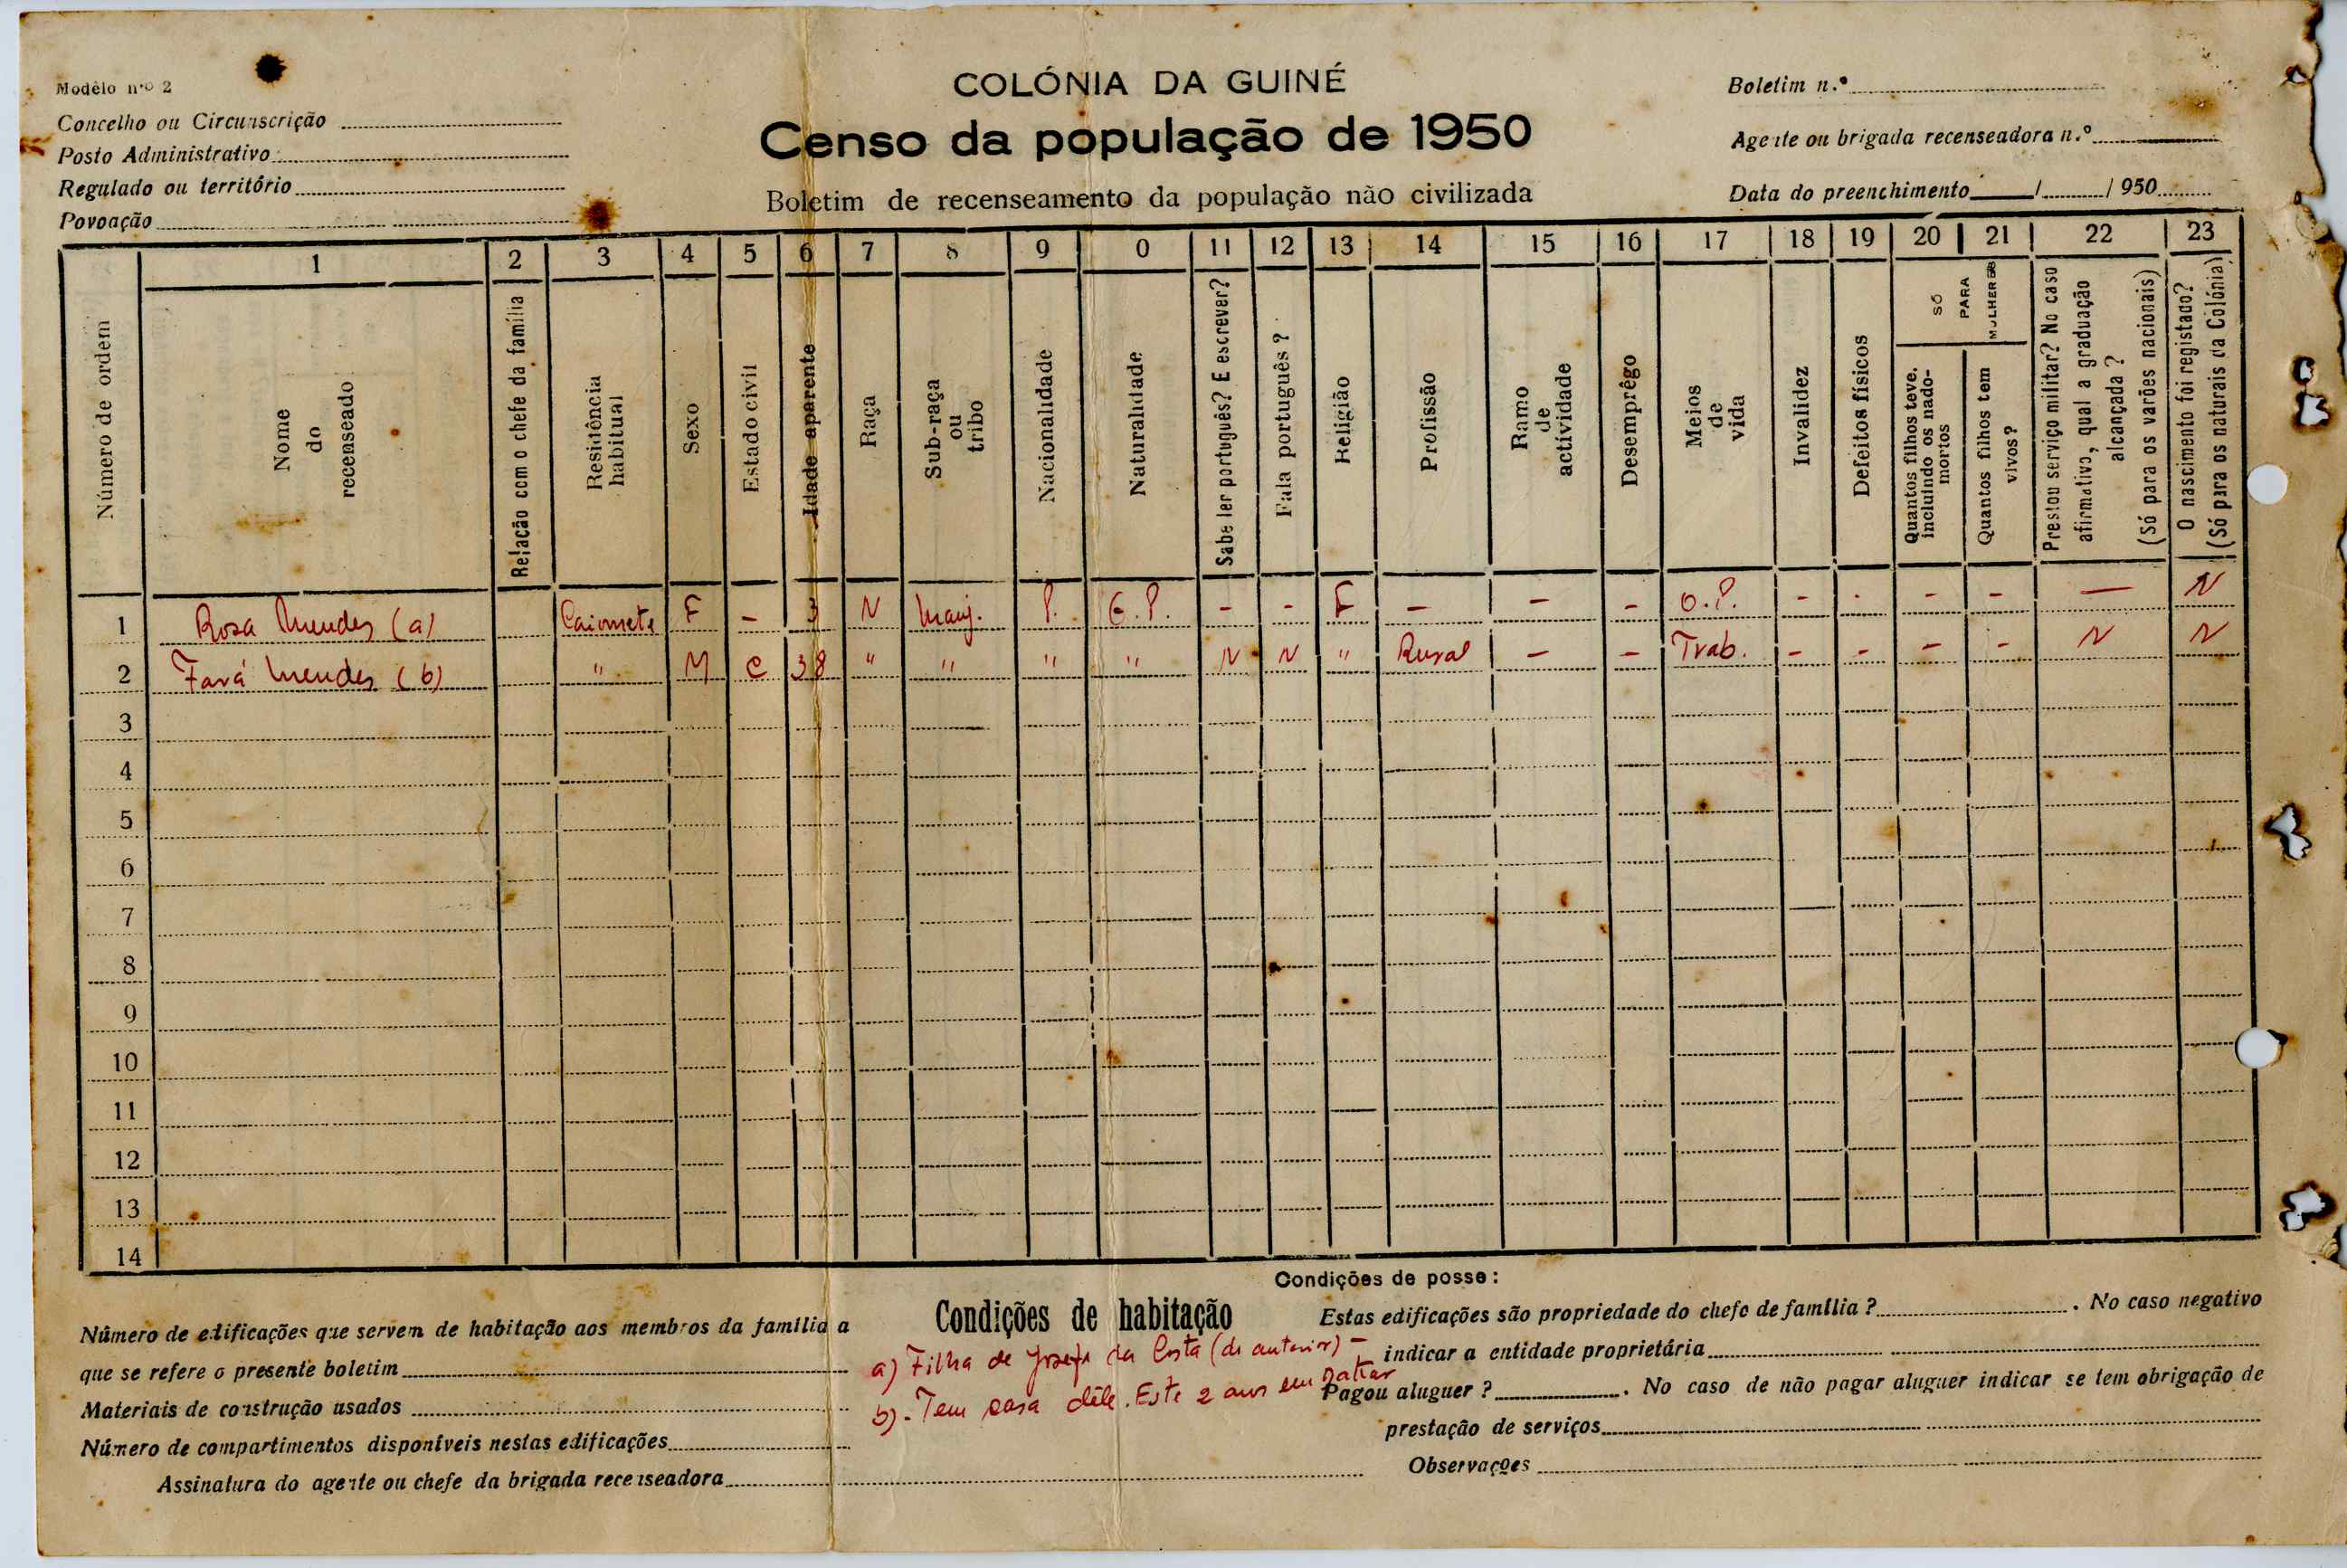 Modêlo n.º 2
Concelho ou Circunscrição
Posto Administrativo
Regulado ou território
Povoação
COLÓNIA DA GUINÉ
Censo da população de 1950
Boletim de recenseamento da população não civilizada
Boletim n.º
Agente ou brigada recenseadora n.º
Data do preenchimento / / 950
1 2 3 4 5 6 7 8 9 0 11 12 13 14 15 16 17 18 19 20 21 22 23
Número de ordem
Nome do recenseado
Relação com o chefe da família
Residência habitual
Sexo
Estado civil
Idade aparente
Raça
Sub-raça ou tribo
Nacionalidade
Naturalidade
Sabe ler português? E escrever?
Fala português ?
Religião
Profissão
Ramo de actividade
Desemprêgo
Meios de vida
Invalidez
Defeitos físicos
SÓ PARA MULHERES
Quantos filhos teve, incluindo os nado-mortos
Quantos filhos tem vivos?
Prestou serviço militar? No caso afirmativo, qual a graduação alcançada ? (Só para os varões nacionais)
O nascimento foi registado? (Só para os naturais da Colónia)
1 Rosa Mendes (a) Caiomete F - 3 N Manj. P. G.P. - - F - - - O.P. - - - - — N
2 Fará Mendes (b) " M C 38 " " " " N N " Rural - - Trab. - - - - N N
3
4
5
6
7
8
9
10
11
12
13
14
Condições de habitação
Número de edificações que servem de habitação aos membros da família a
que se refere o presente boletim
Materiais de construção usados
Número de compartimentos disponíveis nestas edificações
Assinatura do agente ou chefe da brigada recenseadora
a) Filha de da Costa (do anterior) -
b) - Tem casa dêle. Este 2 anos em
Condições de posse :
Estas edificações são propriedade do chefe de família ? . No caso negativo
indicar a entidade proprietária
Pagou aluguer ? . No caso de não pagar aluguer indicar se tem obrigação de
prestação de serviços
Observações